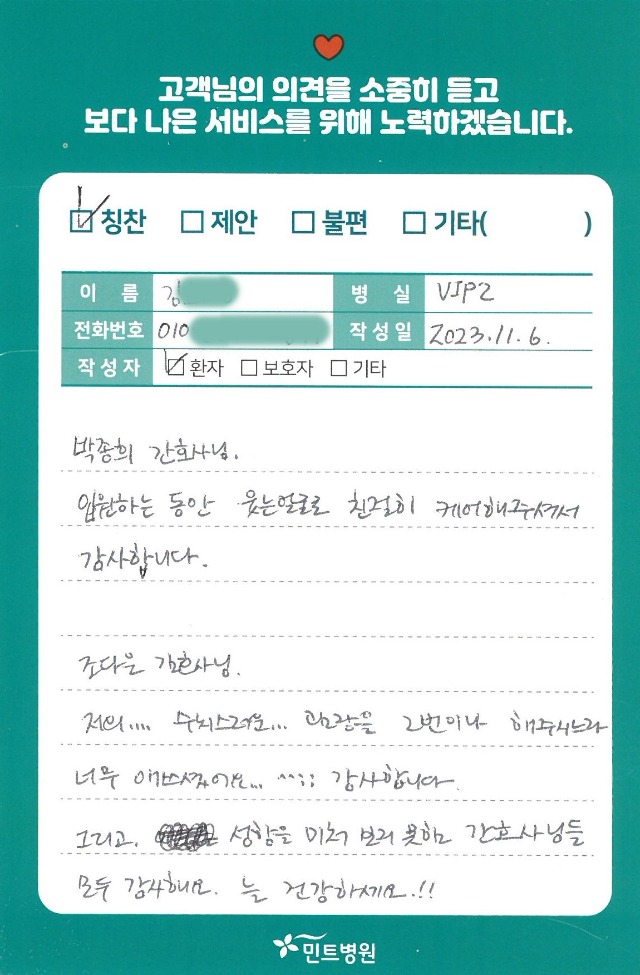 고객님의 의견을 소중히 듣고
보다 나은 서비스를 위해 노력하겠습니다.
칭찬 제안 불편 기타( )
이 름 김 병 실 VIP2
전화번호 010 작성일 2023.11.6.
작성자 환자 보호자 기타
박종희 간호사님.
입원하는 동안 웃는얼굴로 친절히 케어해주셔서
감사합니다.
조다은 간호사님.
저의.... 수치스러운... 관장을 2번이나 해주시느라
너무 애쓰셨어요... ^^;; 감사합니다.
그리고, 성함을 미처 보지 못한 간호사님들
모두 감사해요. 늘 건강하세요.!!
민트병원